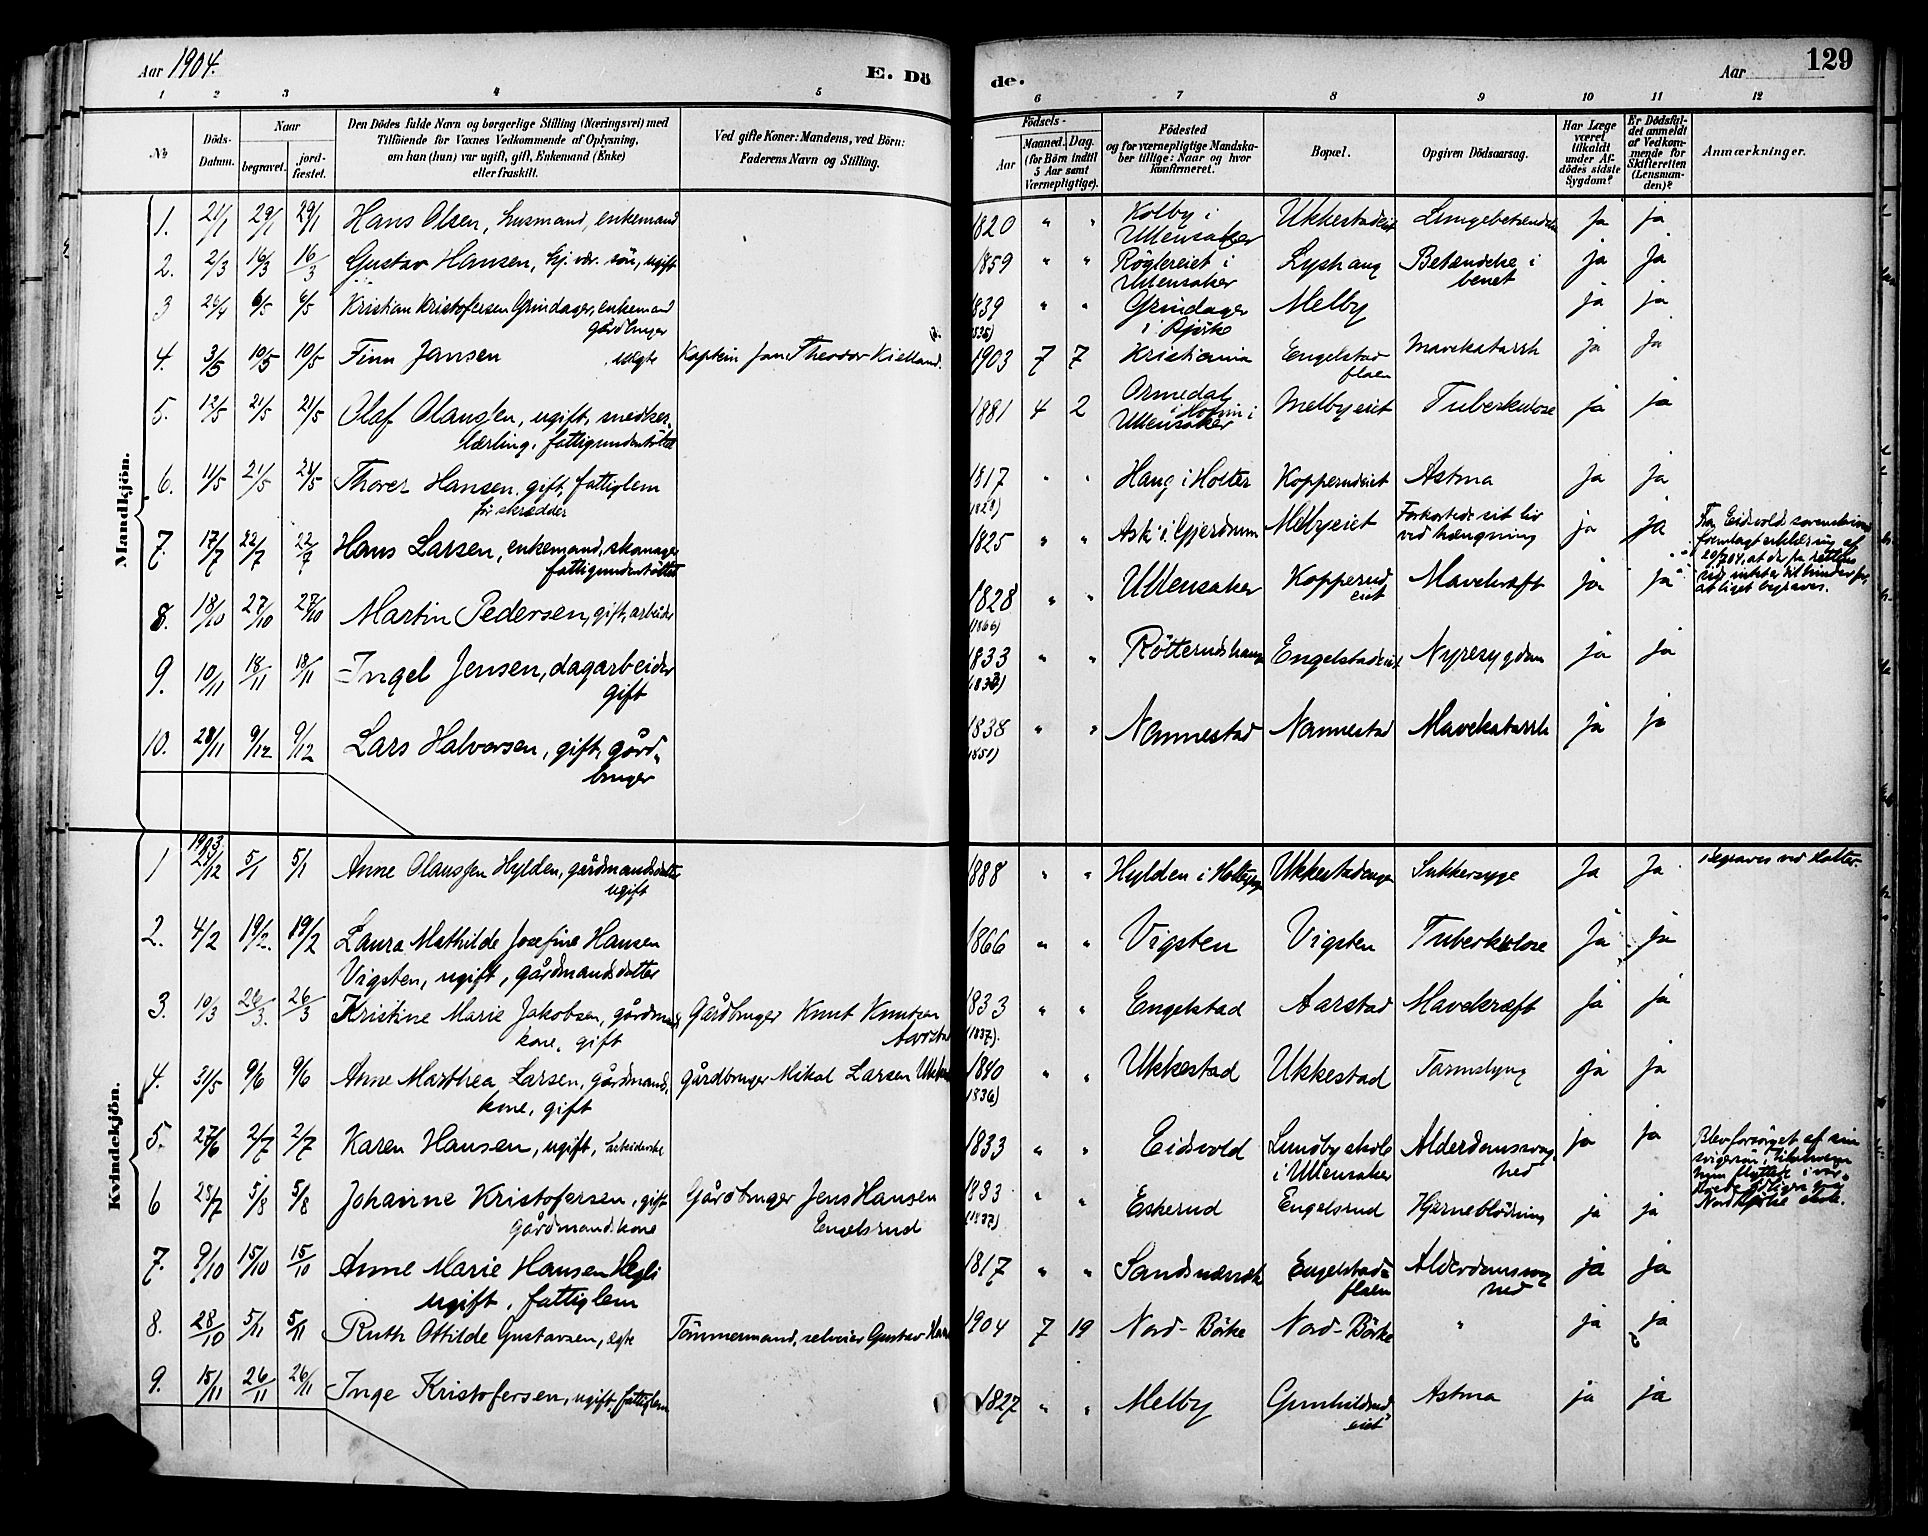 Aar 1904. E. Dö de. Aar 129
1 2 3 4 5 6 7 8 9 10 11 12
No
Döds-Datum.
Naar
begravet.
jord-fæstet.
Den Dödes fulde Navn og borgerlige Stilling (Næringsvei) med
Tilföiende for Voxnes Vedkommende af Oplysning,
om han (hun) var ugift, gift, Enkemand (Enke)
eller fraskilt.
Ved gifte Koner: Mandens, ved Börn:
Faderens Navn og Stilling.
Födsels-
Aar
Maaned. Dag.
(for Børn indtil
5 Aar samt
Værnepligtige).
Födested
og for værnepligtige Mandska-
ber tillige: Naar og hvor
konfirmeret.
Bopæl.
Opgiven Dödsaarsag.
Har Læge
været
tilkaldt
under Af-
dödes sidste
Sygdom?
Er Dödsfal-
det anmeldt
af Vedkom-
mende for
Skifteretten
(Lensman-
den)?
Anmærkninger.
Mandkjön.
1. 21/1 29/1 29/1 Hans Olsen, husmand, enkemand 1820 " " Kolby i Ullensaker Ukkestadeiet Lungebetændelse Ja ja
2. 2/3 16/3 16/3 Gustav Hansen, søn, ugift 1859 " " i Ullensaker Lyshaug Betændelse i benet ja Ja
3 6/5 6/5 Kristian Kristofersen Grindager, enkemand gårdbruger 1839 " " Grindager i Bjerke Melby ja ja
4. 3/5 10/5 10/5 Finn Jansen uegte Kaptein Jan Theodor Kielland. 1903 7 7 Kristiania Engelstad flaen Mavekatarrh ja Ja
5. 12/5 21/5 21/5 Olaf Olausen, ugift, snedker-
lærling, fattigunderstöttet 1881 4 2 i Ullensaker Melbyeiet Tuberkulose ja ja
6. 11/5 21/5 21/5 Thorer Hansen, gift, fattiglem
før skrædder 1817 " " Haug i Holter Kopperudeiet Astma Ja ja
7. 17/7 22/7 22/7 Hans Larsen, enkemand, skomager,
fattigunderstöttet 1825 " " Ask i Gjerdrum Melbyeiet Forkortede sit liv
ved hængning ja ja
8. 18/10 27/10 27/10 Martin Pedersen, gift, arbeider 1828 " " Ullensaker Kopperud eiet Mavekræft ja ja
9. 10/11 18/11 18/11 Ingel Jensen, dagarbeider
gift 1833 " " Engelstadeiet Nyresygdom ja ja
10. 29/11 9/12 9/12 Lars Halvorsen, gift, gård-
bruger 1838 " " Nannestad Nannestad Mavekatarrh ja ja
Kvindekjön.
1 1903 5/1 5/1 Anne Olausen Hylden, gårdmandsdatter,
ugift 1888 " " Hylden i Sukkersyge Ja Ja begraves ved Holter.
2. 4/2 19/2. 19/2 Laura Mathilde Josefine Hansen
Vigsten, ugift, gårdmandsdatter 1866 " " Vigsten Vigsten Tuberkulose Ja ja
3. 10/3 26/3. 26/3 Kristine Marie Jakobsen, gårdmands
kone, gift Gårdbruger Knut Knutsen
Aarstad 1833 (1837). " " Engelstad Aarstad Mavekræft ja ja
4. 31/5 9/6 9/6 Anne Marthea Larsen, gårdmands
kone, gift gårdbruger Mikal Larsen 1840 (1836) " " Ukkestad Ukkestad ja ja
5. 27/6 2/7 2/7 Karen Hansen, ugift, arbeiderske 1833 " " Eidsvold Lundbyskole
i Ullensaker Alderdomssvag
hed ja ja
6 5/8 5/8 Johanne Kristofersen, gift
gårdmandskone Gårdbruger Jens Hansen
Engelsrud 1833 (1837) " " Eskerud Engelsrud Hjerneblödning ja ja
7. 9/10 15/10 15/10 Anne Marie Hansen Hegli
ugift, fattiglem 1817 " " Engelstad-
flaen Alderdomssvag
hed ja ja
8. 28/10 5/11 5/11 Ruth Ottilde Gustavsen, egte Tömmermand, selveier Gustav 1904 7 19 Nord-Börke Nord-Börke " ja ja
9. 15/11 26/11 26/11 Inge Kristofersen, ugift, fattiglem 1827 " " Melby Gunhildrud
eiet Astma ja ja